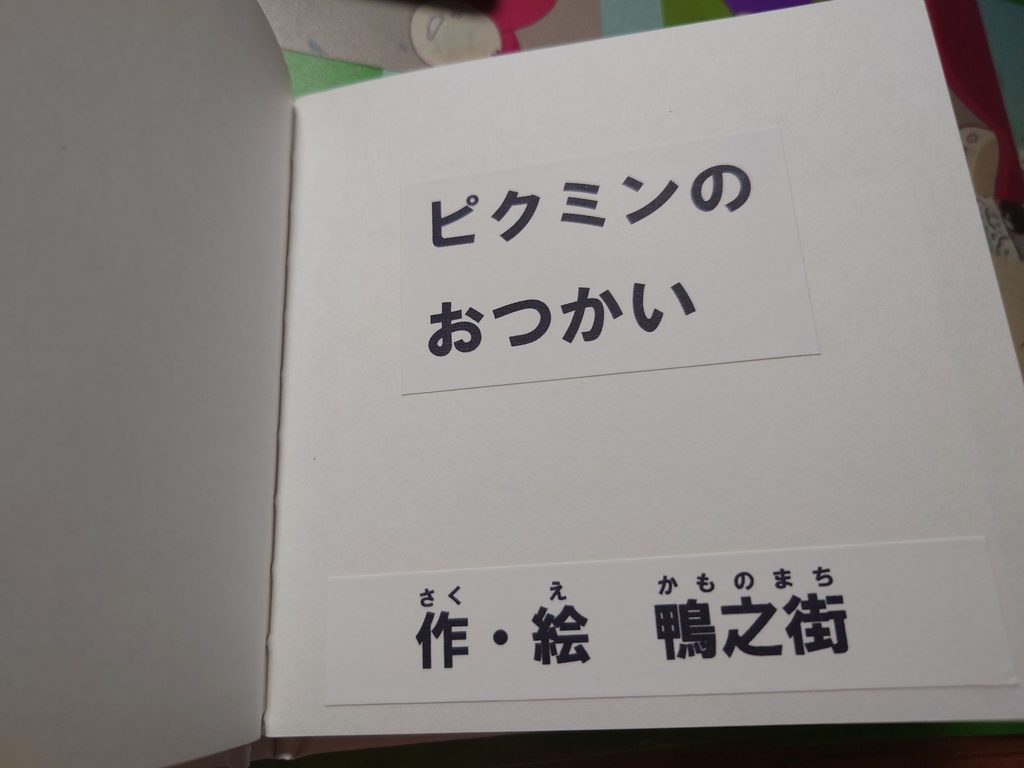 ピクミンの
おつかい
さく え かものまち
作・絵 鴨之街